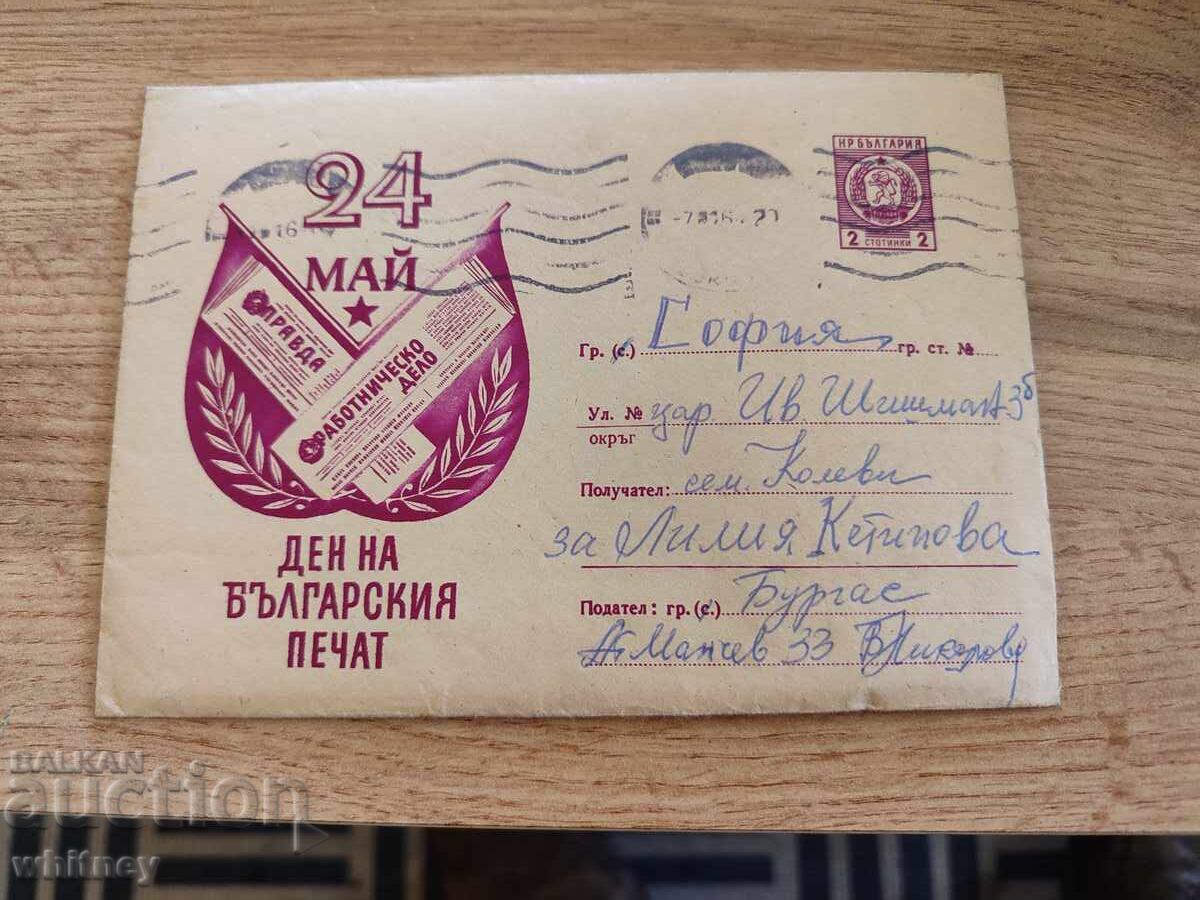 24
МАЙ
ПРАВДА
РАБОТНИЧЕСКО
ДЕЛО
ДЕН НА
БЪЛГАРСКИЯ
ПЕЧАТ
НР БЪЛГАРИЯ
2 СТОТИНКИ 2
Гр. (с.) София гр. ст. №
Ул. № цар Ив Шишман 3б
окръг
Получател: сем. Колеви
за Лилия Кетипова
Подател: гр. (с.) Бургас
Манчев 33
BALKAN
auction
whitney